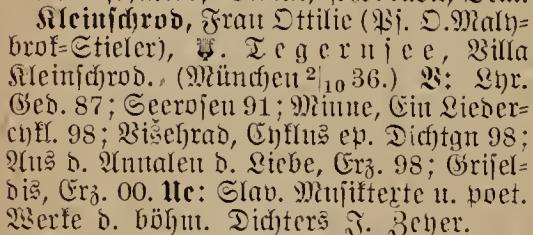 Kleinschrod, Frau Ottilie (Ps. O. Maly-
brok-Stieler), Tegernsee, Villa
Kleinschrod. (München 2/10 36.) V: Lyr.
Ged. 87; Seerosen 91; Minne, Ein Lieder-
cykl. 98; Višehrad, Cyklus ep. Dichtgn 98;
Aus d. Annalen d. Liebe, Erz. 98; Grisel-
dis, Erz. 00. Ue: Slav. Musiktexte u. poet.
Werke d. böhm. Dichters J. Zeyer.